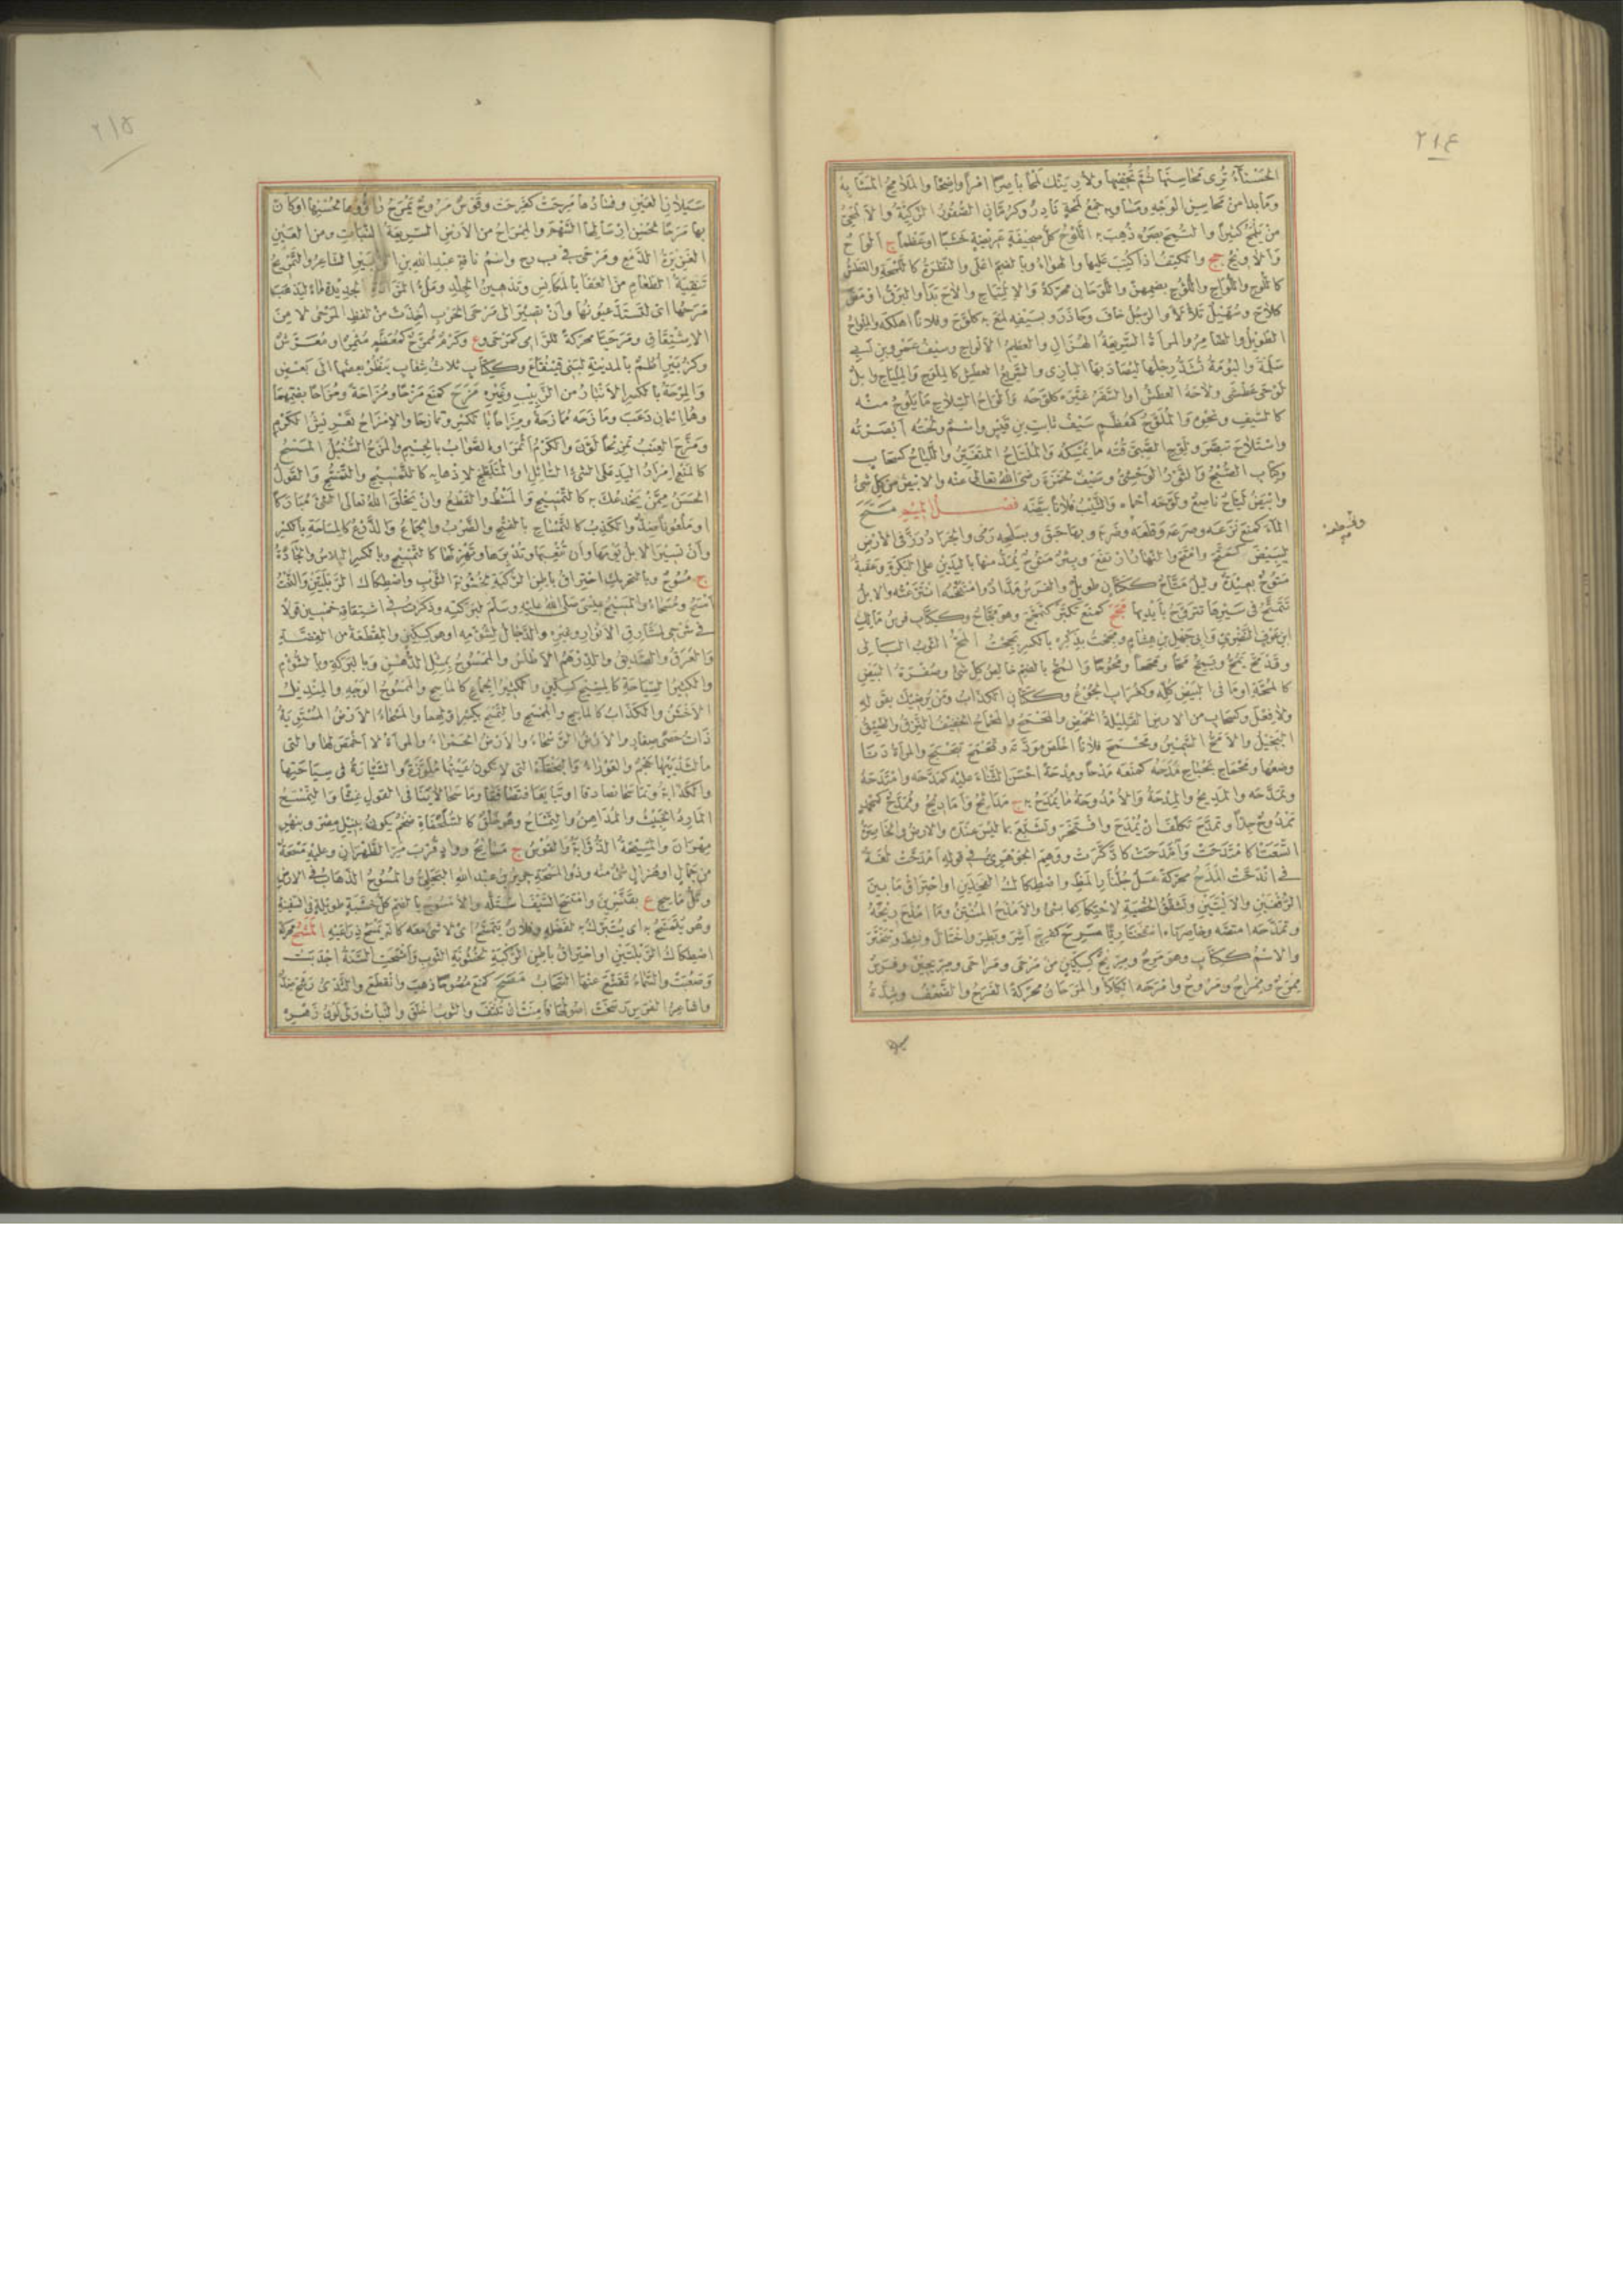 ٢١٤
الحسناء ترى محاسنها ثم تخفيها ولأرينك لمحا باصرا امرا واضحا والملامح المشابه
وما بدا من محاسن الوجه ومساويه جمع لمحة نادر وكرمان الصقور الذكية والالمحي
من يلمح كثيرا والتمح بصره ذهب به اللوح كل صحيفة عريضة خشبا او عظما ج الواح
والاويح جج والكتف اذا كتب عليها والهواء وبالضم اعلى والنظرة كاللمحة والعطش
كاللوح واللواح واللؤوح بضمهن واللوحان محركة والالتياح والاح بدا والبرق اومض
كلاح وسهيل تلألأ والرجل خاف وحاذر وبسيفه لمع به كلوح وفلانا اهلكه والملواح
الطويل والضامر والمرأة السريعة الهزال والعظيم الالواح وسيف عمرو بن ابي
سلمة والبومة تشد رجلها ليصاد بها البازي والسريع العطش كالملوح والملياح وابل
لوحى عطشى ولاحه العطش او السفر غيره كلوحه والواح السلاح ما يلوح منه
كالسيف ونحوه والملوح كمعظم سيف ثابت بن قيس واسم ولحته ابصرته
واستلاح تبصر ولوح الصبي قته ما يمسكه والملتاح المتغير واللياح كسحاب
وكتاب الصبح والثور الوحشي وسيف لحمزة رضي الله تعالى عنه والابيض من كل شئ
وابيض لياح ناصع ولوحه احماه والشيب فلانا بيضه فصل الميم متح
الماء كمنع نزعه وصرعه وقلعه وضربه وبها حبق وبسلحه رمى والجراد رز في الارض
ليبيض كمتح وامتح والنهار ارتفع وبئر متوح يمد منها باليدين على البكرة وعقبة
متوح بعيدة وليل متاح ككتان طويل وفرس متاح مداد وامتتحه انتزعه والابل
تتمتح في سيرها تتروح بايديها مجح كمنع تكبر كتمجح وهو مجاح وككتاب فرس مالك
ابن عوف النصري وابي جهل بن هشام ومجحت بذكره بالكسر بجحت المح الثوب البالي
وقد مح يمح ويمح محا ومححا ومحوحا والمح بالضم خالص كل شئ وصفرة البيض
كالمحة او ما في البيض كله وكغراب الجوع وككتان الكذاب ومن يرضيك بقوله
ولا فعل وكسحاب من الارض القليلة الحمض والمحمح والمحماح الخفيف النزق والضيق
البخيل والامح السمين ومحمح فلانا اخلص مودته وتمحمح تبحبح والمرأة دنا
وضعها ومحماح بحباح مدحه كمنعه مدحا ومدحة احسن الثناء عليه كمدحه وامتدحه
وتمدحه والمديح والمدحة والامدوحة ما يمدح به ج مدائح واماديح وممدح كمحمد
ممدوح جدا وتمدح تكلف ان يمدح وافتخر وتشبع بما ليس عنده والارض والخاصرة
اتسعتا كامتدحت وامدحت كاذكرت ووهم الجوهري في قوله امدحت لغة
في اندحت المذح محركة عسل جلنار المظ واصطكاك الفخذين او احتراق ما بين
الرفغين والاليتين وتشقق الخصية لاحتكاكها بشئ والامذح المنتن وما امذح ريحه
وتمذحه امتصه وخاصرتاه انتفختا ريا مرح كفرح اشر وبطر واختال ونشط وتبختر
والاسم ككتاب وهو مرح ومريح كسكين من مرحى ومراحى ومريحين وفرس
ممرح وممراح ومروح وامرحه الكلأ والمرحان محركة الفرح والضعف وشدة
٢١٥
سيلان العين وفسادها مرحت كفرحت وقوس مروح يمرح راؤوها لحسنها او كان
بها مرحا لحسن ارسالها السهم والممراح من الارض السريعة النبات ومن العين
الغزيرة الدمع ومرحى في ب ر ح واسم ناقة عبد الله بن الزبير الشاعر والتمريح
تنقية الطعام من العفا بالمكانس وتدهين الجلد وملء المزادة الجديدة ماء ليذهب
مرحها اي لتنسد عيونها وان تصير الى مرحى الحرب اخذت من لفظ المرحى لا من
الاشتقاق ومرحيا محركة للرامي كمرحى وع وكرم ممرح كمعظم مثمر او معرش
وكزبير اطم بالمدينة لبني قينقاع وككتاب ثلاث شعاب ينظر بعضها الى بعض
والمرحة بالكسر الانبار من الزبيب وغيره مزح كمنع مزحا ومزاحة ومزاحا بضمهما
وهما اسمان دعب ومازحه ممازحة ومزاحا بالكسر وتمازحا والامزاح تعريش الكرم
ومزح العنب تمزيحا لون والكرم اثمر او الصواب بالجيم والمزح السنبل المسح
كالمنع امرار اليد على الشئ السائل او المتلطخ لاذهابه كالتمسيح والتمسح والقول
الحسن ممن يخدعك به كالتمسيح والمشط والقطع وان يخلق الله تعالى الشئ مباركا
او ملعونا ضد والكذب كالتمساح بالفتح والضرب والجماع والذرع كالمساحة بالكسر
وان تسير الابل يومها وان تتعبها وتدبرها وتهزلها كالتمسيح وبالكسر البلاس والجادة
ج مسوح وبالتحريك احتراق باطن الركبة لخشونة الثوب واصطكاك الربلتين والنعت
امسح ومسحاء والمسيح عيسى صلى الله عليه وسلم لبركته وذكرت في اشتقاقه خمسين قولا
في شرحي لمشارق الانوار وغيره والدجال لشؤمه او هو كسكين والقطعة من الفضة
والعرق والصديق والدرهم الاطلس والممسوح بمثل الدهن وبالبركة وبالشؤم
والكثير السياحة كالمسيح كسكين والكثير الجماع كالماسح والممسوح الوجه والمنديل
الاخشن والكذاب كالماسح والممسح والتمسح بكسر اولهما والمسحاء الارض المستوية
ذات حصى صغار والارض الرسحاء والارض الحمراء والمرأة لا اخمص لها والتي
ما لثدييها حجم والعوراء والبخقاء التي لا تكون عينها ملوزة والسيارة في سياحتها
والكذابة وتماسحا تصادقا او تبايعا فتصافقا وماسحا لاينا في القول غشا والتمسح
المارد الخبيث والمداهن والتمساح وهو خلق كالسلحفاة ضخم يكون بنيل مصر وبنهر
مهران والمسيحة الذؤابة والقوس ج مسائح وواد قرب مر الظهران وعليه مسحة
من جمال او هزال شئ منه وذو المسحة جرير بن عبد الله البجلي والمسوح الذهاب في الارض
وتل ماسح ع بقنسرين وامتسح السيف استله والامسوح بالضم كل خشبة طويلة في السفينة
وهو يتمسح به اي يتبرك به لفضله وفلان يتمسح اي لا شئ معه كانه يمسح ذراعيه المشح محركة
اصطكاك الربلتين او احتراق باطن الركبة لخشونة الثوب وامشحت السنة اجدبت
وصعبت والسماء تقشع عنها السحاب مصح كمنع مصوحا ذهب وانقطع والثدي رشح ضد
واشاعر الفرس رسخت اصولها فامنت ان تنتف والثوب اخلق والنبات ولى لون زهره